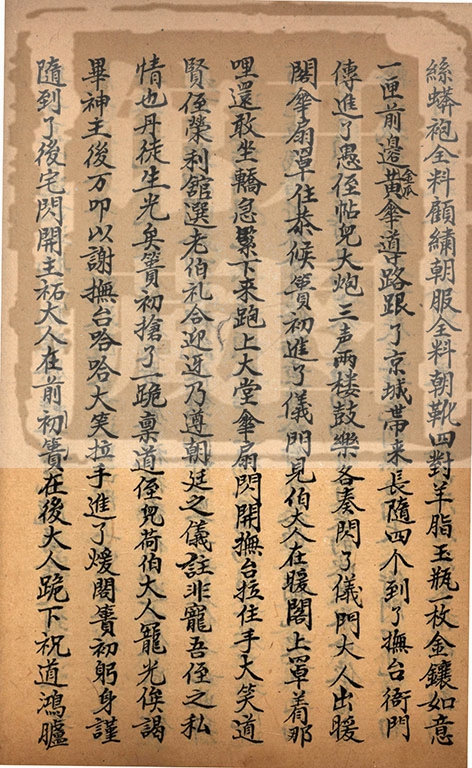 絲蟒袍全料顧繡朝服全料朝靴四對羊脂玉瓶一枚金鑲如意
一匣前邊金瓜黃傘導路跟了京城帶来長隨四个到了撫台衙門
傳進了愚侄帖兒大炮三声兩楼鼓樂各奏閃了儀門大人出暖
閣傘扇罩住恭候簣初進了儀門見伯大人在暖閣上罩着那
哩還敢坐轎急緊下来跑上大堂傘扇閃開撫台拉住手大笑道
賢侄榮利舘選老伯礼合迎迓乃遵朝廷之儀註非寵吾侄之私
情也丹徒生光矣簣初搶了一跪禀道侄兒荷伯大人寵光俟謁
畢神主後万叩以謝撫台哈哈大笑拉手進了煖閣簣初躬身謹
隨到了後宅閃開主祏大人在前初簣在後大人跪下祝道鴻臚